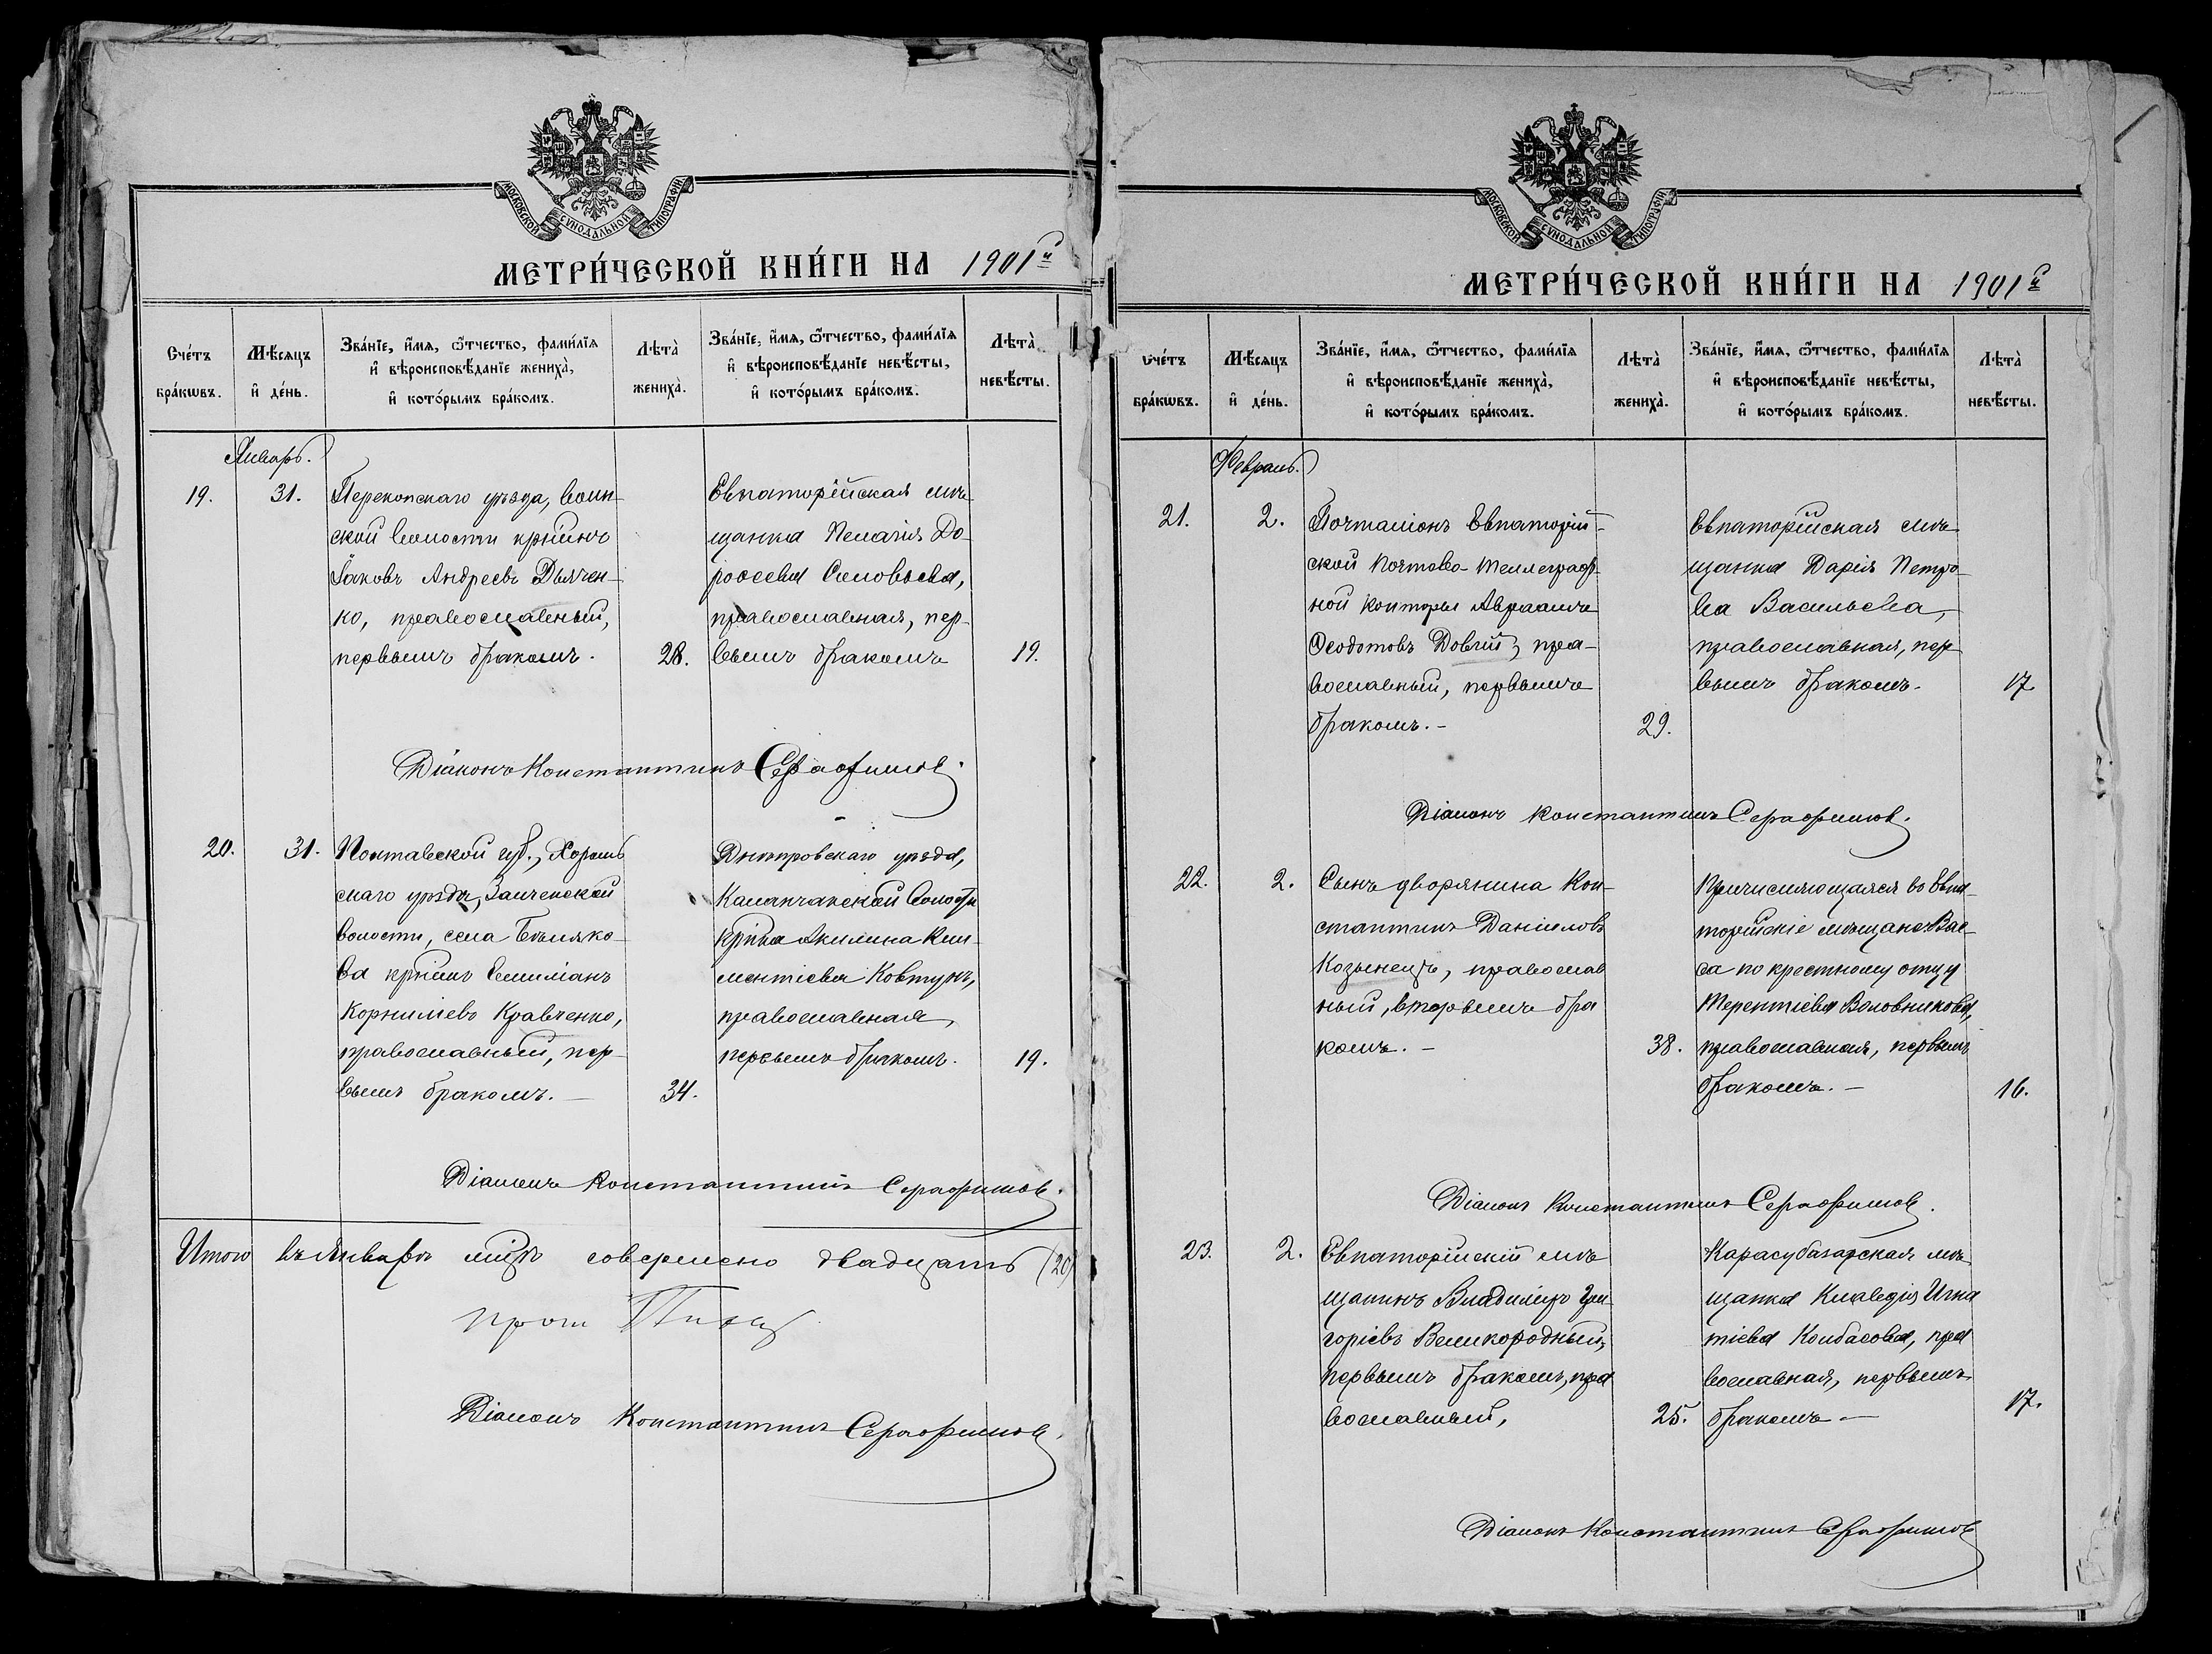 МОСКОВСКОЙ СѴНОДАЛЬНОЙ ТИПОГРАФІИ
МЕТРИ́ЧЕСКОЙ КНИ́ГИ НА 1901й
Сче́тъ бра́кѡвъ.
Мѣ́сяцъ и҆ де́нь.
Зва́нїе, и҆́мѧ, ѻ҆́тчество, фами́лїѧ
и҆ вѣроисповѣ́данїе жениха̀,
и҆ кото́рымъ бра́комъ.
Лѣта̀ жениха̀.
Зва́нїе, и҆́мѧ, ѻ҆́тчество, фами́лїѧ
и҆ вѣроисповѣ́данїе невѣ́сты,
и҆ кото́рымъ бра́комъ.
Лѣта̀ невѣ́сты.
Январь.
19. 31.
Перекопскаго уѣзда, Воин-
ской волости кр̃нинъ
Іаковъ Андреевъ Дьячен-
ко, православный,
первымъ бракомъ. 28.
Евпаторійская мѣ-
щанка Пелагія До-
роѳеева Соловьева,
православная, пер-
вымъ бракомъ 19.
Діаконъ Константинъ Серафимовъ.
20. 31.
Полтавской губ., Хороль
скаго уѣзда, Заиченской
волости, села Бѣляко-
ва кр̃нинъ Емиліанъ
Корниліевъ Кравченко,
православный, пер-
вымъ бракомъ. 34.
Днѣпровскаго уѣзда,
Каланчакской волости
кр̃нка Акилина Кли-
ментіева Ковтунъ,
православная,
первымъ бракомъ. 19.
Діаконъ Константинъ Серафимовъ.
Итого въ Январѣ мц̃ѣ совершено двадцать (20)
прот.
Діаконъ Константинъ Серафимовъ.
МОСКОВСКОЙ СѴНОДАЛЬНОЙ ТИПОГРАФІИ
МЕТРИ́ЧЕСКОЙ КНИ́ГИ НА 1901й
Сче́тъ бра́кѡвъ.
Мѣ́сяцъ и҆ де́нь.
Зва́нїе, и҆́мѧ, ѻ҆́тчество, фами́лїѧ
и҆ вѣроисповѣ́данїе жениха̀,
и҆ кото́рымъ бра́комъ.
Лѣта̀ жениха̀.
Зва́нїе, и҆́мѧ, ѻ҆́тчество, фами́лїѧ
и҆ вѣроисповѣ́данїе невѣ́сты,
и҆ кото́рымъ бра́комъ.
Лѣта̀ невѣ́сты.
Февраль.
21. 2.
Почталіонъ Евпаторій-
ской почтово-телеграф-
ной конторы Авраамъ
Ѳеодотовъ Довгій, пра-
вославный, первымъ
бракомъ.- 29.
Евпаторійская мѣ-
щанка Дарія Петро-
ва Васильева,
православная, пер-
вымъ бракомъ. 17
Діаконъ Константинъ Серафимовъ.
22. 2.
Сынъ дворянина Кон-
стантинъ Даніиловъ
Козынецъ, православ
ный, вторымъ бра
комъ.- 38.
Причисляющаяся во Евпа-
торійскіе мѣщане Вас-
са по крестному отцу
Терентіева Воловникова,
православная, первымъ
бракомъ.- 16.
Діаконъ Константинъ Серафимовъ.
23. 2.
Евпаторійскій мѣ
щанинъ Владиміръ Гри-
горіевъ Великородный,
первымъ бракомъ, пра
вославный, 25.
Карасубазарская мѣ-
щанка Клавдія Игна
тіева Колбасова, пра
вославная, первымъ
бракомъ- 17.
Діаконъ Константинъ Серафимовъ